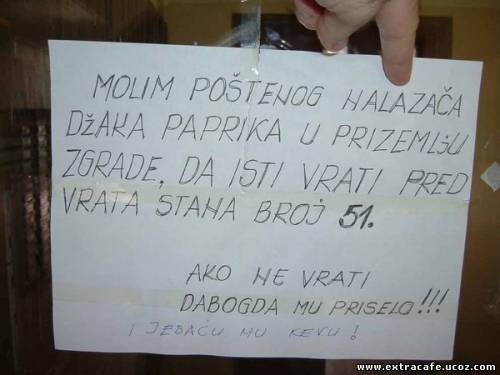 MOLIM POŠTENOG HALAZAČA
DŽAKA PAPRIKA U PRIZEMLjU
ZGRADE, DA ISTI VRATI PRED
VRATA STAHA BROJ 51.
AKO HE VRATI
DABOGDA MU PRISELO!!!
I JEBAĆU MU KEVU!
www.extracafe.ucoz.com